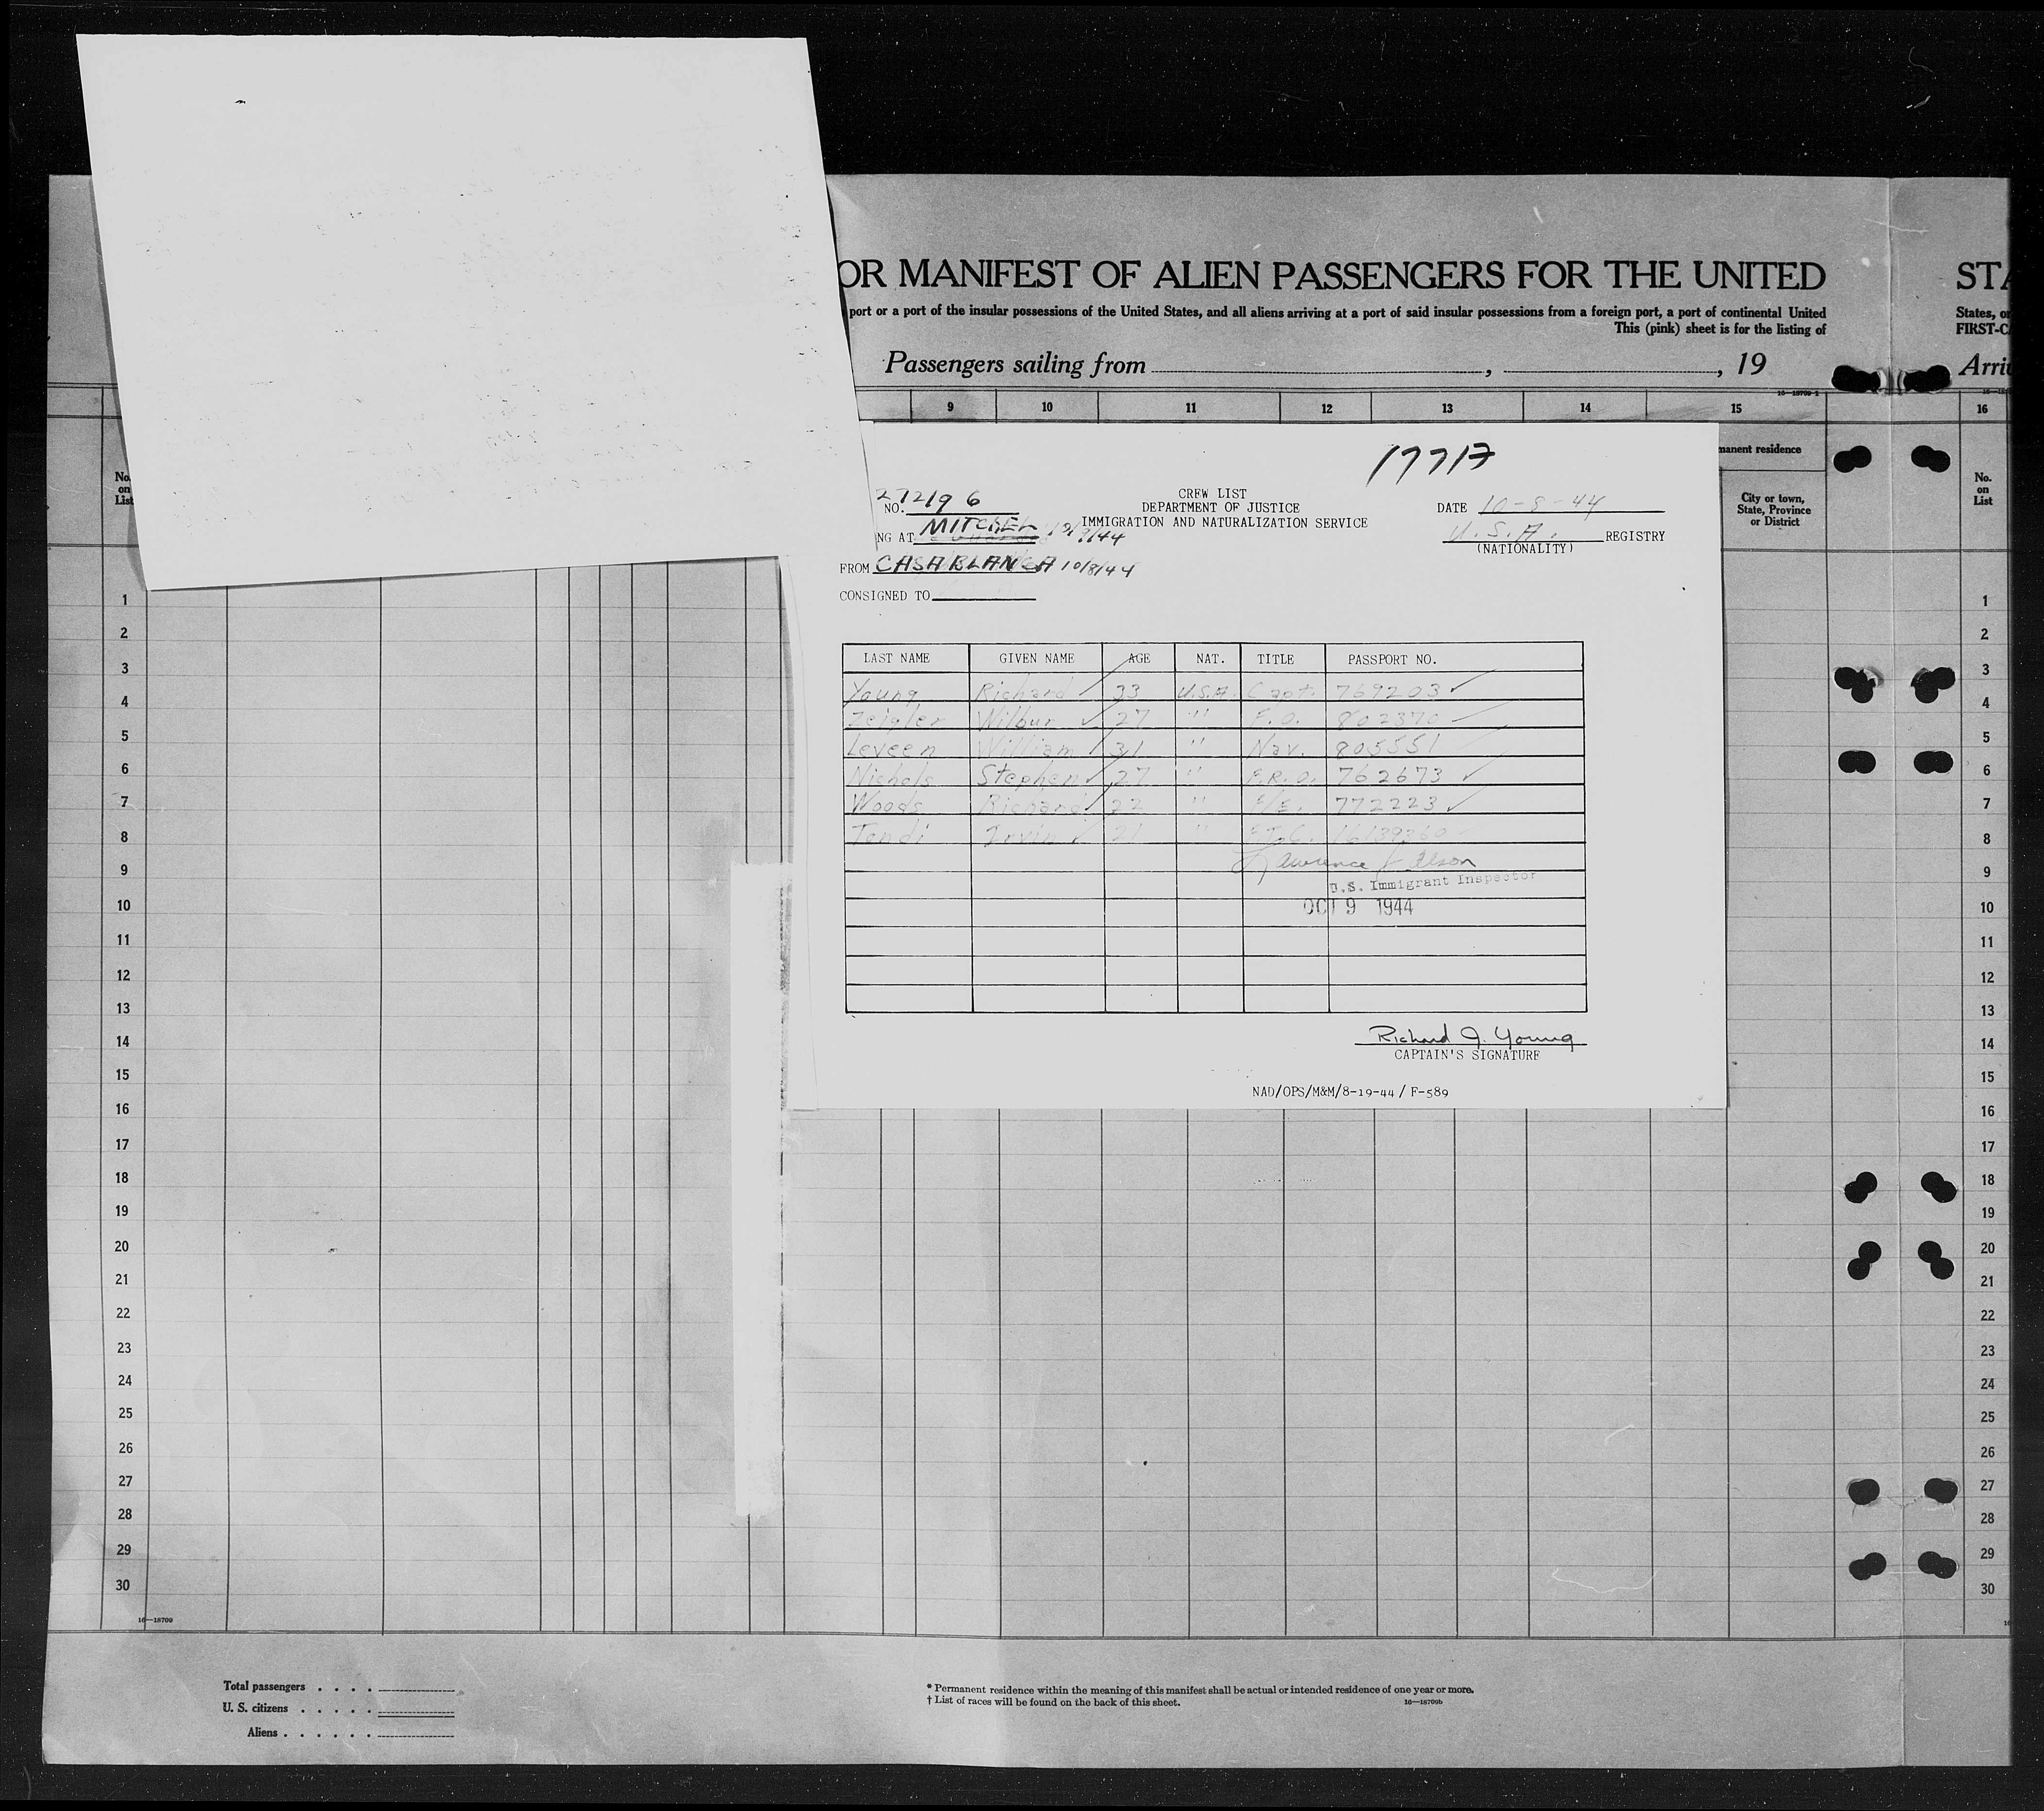 OR MANIFEST OF ALIEN PASSENGERS FOR THE UNITED
STA
port or a port of the insular possessions of the United States, and all aliens arriving at a port of said insular possessions from a foreign port, a port of continental United
States, or
This (pink) sheet is for the listing of
FIRST-C
Passengers sailing from , , 19
Arri
9 10 11 12 13 14 15 16
manent residence
No. on List
City or town, State, Province or District
No. on List
17717
272196
NO.
CREW LIST
DEPARTMENT OF JUSTICE
IMMIGRATION AND NATURALIZATION SERVICE
DATE 10-8-44
NG AT MITCHEL 10/9/44
U.S.A. REGISTRY
(NATIONALITY)
FROM CASABLANCA 10/8/44
CONSIGNED TO
LAST NAME GIVEN NAME AGE NAT. TITLE PASSPORT NO.
Young Richard 33 U.S.A. Capt. 769203
Zeigler Wilbur 27 " F.O. 802370
Leveen William 31 " Nav. 805551
Nichols Stephen 27 " F.R.O. 762673
Woods Richard 22 " F/E. 772223
Tondi Irvin 21 " 16139360
Lawrence
U.S. Immigrant Inspector
OCT 9 1944
Richard J. Young
CAPTAIN'S SIGNATURE
NAD/OPS/M&M/8-19-44 / F-589
1 1
2 2
3 3
4 4
5 5
6 6
7 7
8 8
9 9
10 10
11 11
12 12
13 13
14 14
15 15
16 16
17 17
18 18
19 19
20 20
21 21
22 22
23 23
24 24
25 25
26 26
27 27
28 28
29 29
30 30
16—18709
Total passengers . . . .
U. S. citizens . . . . .
Aliens . . . . . .
* Permanent residence within the meaning of this manifest shall be actual or intended residence of one year or more.
† List of races will be found on the back of this sheet.
16—18709b